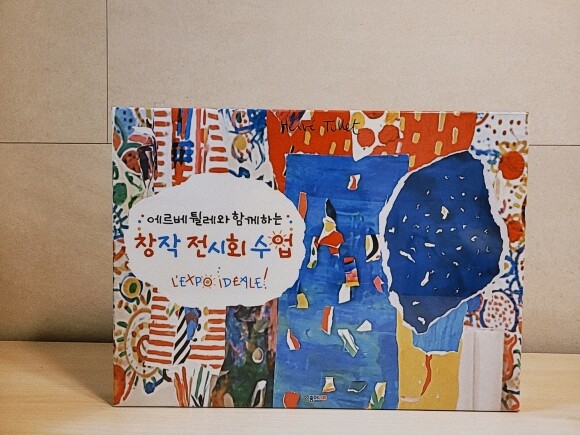 Herve Tullet
에르베 튈레와 함께하는
창작 전시회 수업
L'EXPO iDEALE!